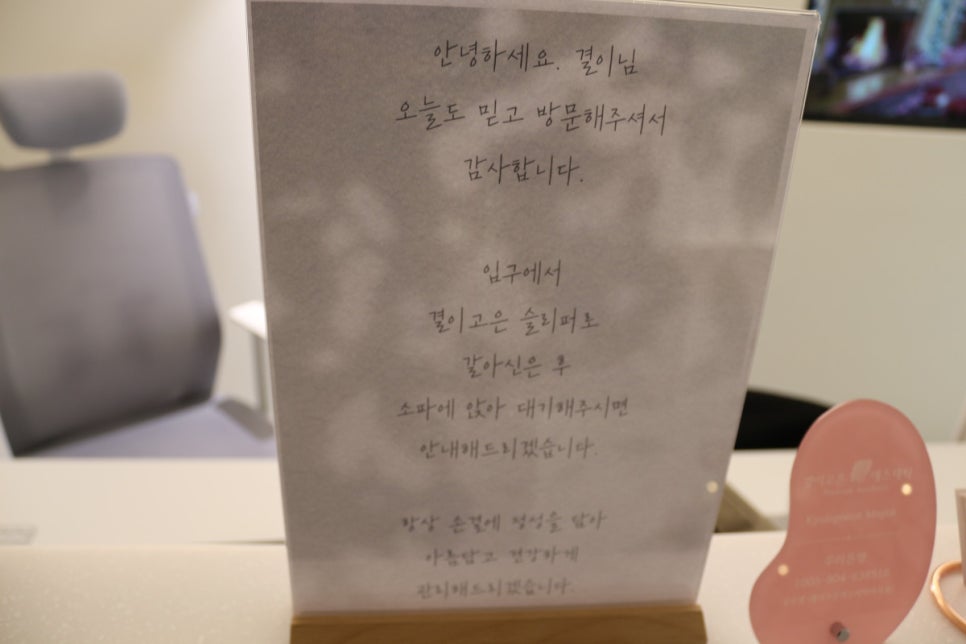 안녕하세요. 결이님
오늘도 믿고 방문해주셔서
감사합니다.
입구에서
결이고은 슬리퍼로
갈아신은 후
소파에 앉아 대기해주시면
안내해드리겠습니다.
항상 손결에 정성을 담아
아름답고 건강하게
관리해드리겠습니다.
결이고은 에스테틱
우리은행